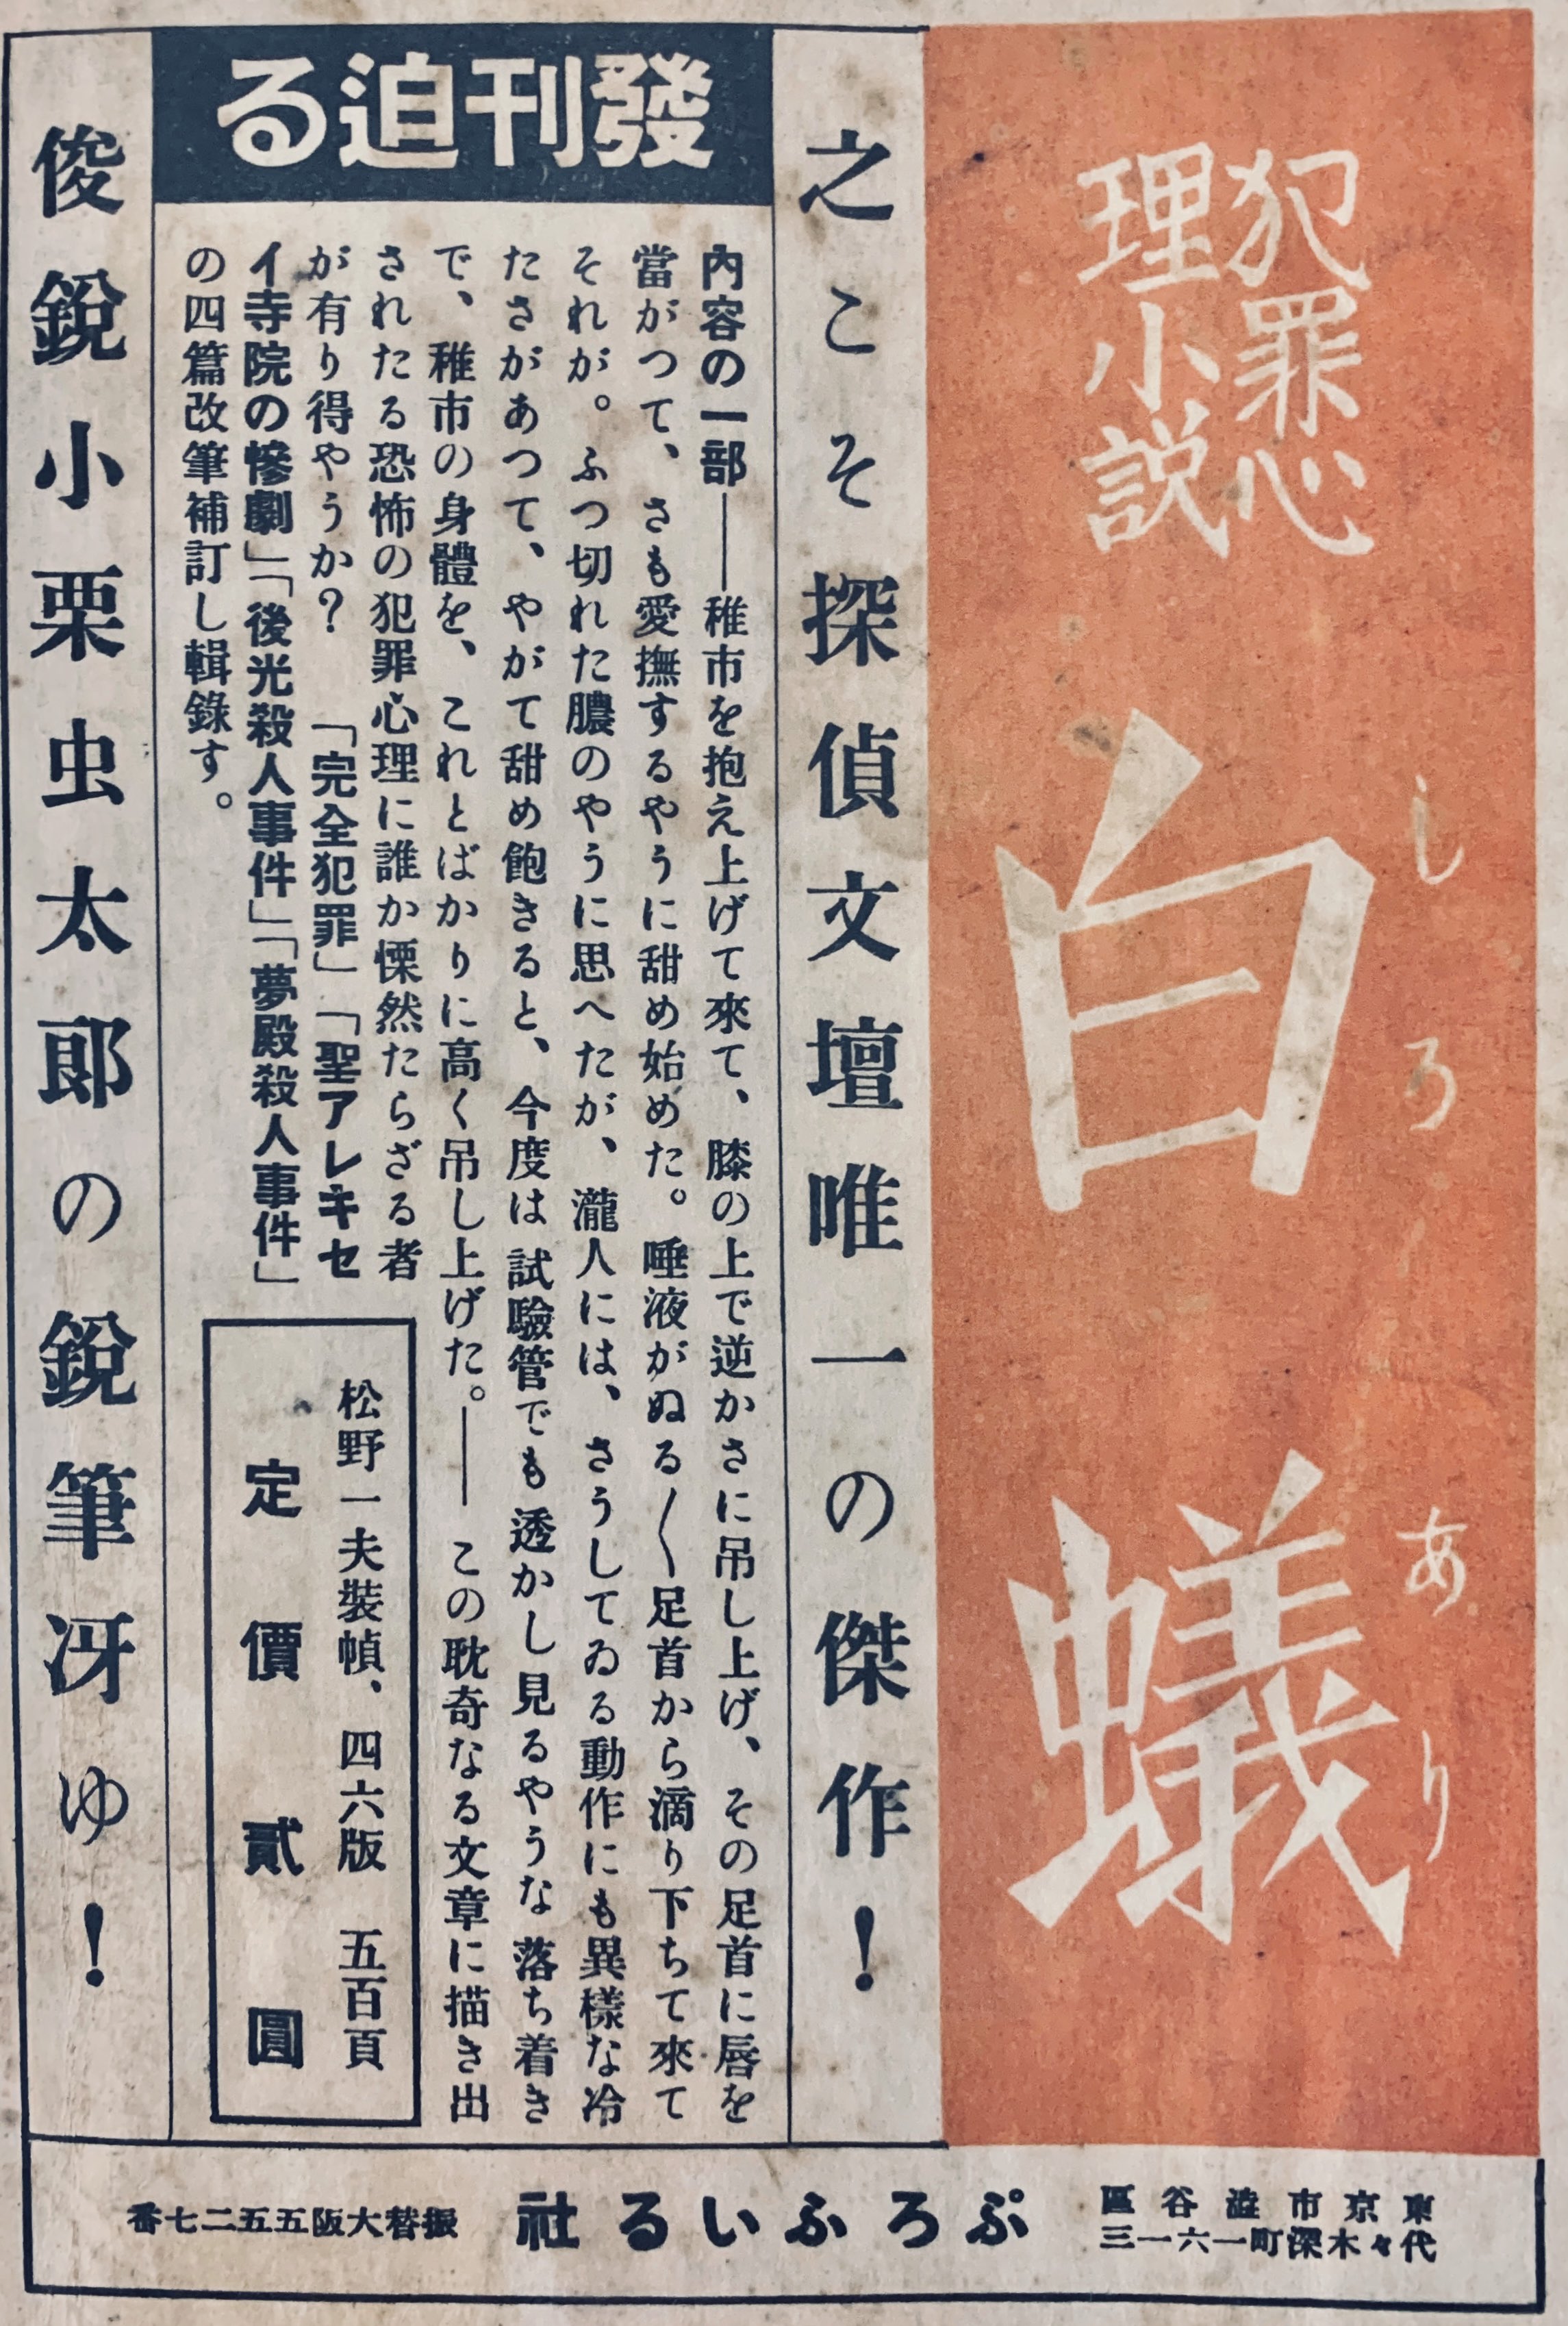 犯罪心
理小説
しろあり
白蟻
之こそ探偵文壇唯一の傑作！
發刊迫る
內容の一部――稚市を抱え上げて來て、膝の上で逆かさに吊し上げ、その足首に唇を
當がつて、さも愛撫するやうに甜め始めた。唾液がぬる〱足首から滴り下ちて來て
それが。ふつ切れた膿のやうに思へたが、瀧人には、さうしてゐる動作にも異樣な冷
たさがあつて、やがて甜め飽きると、今度は試驗管でも透かし見るやうな落ち着き
で、稚市の身體を、これとばかりに高く吊し上げた。――この耽奇なる文章に描き出
されたる恐怖の犯罪心理に誰か慄然たらざる者
が有り得やうか？「完全犯罪」「聖アレキセ
イ寺院の慘劇」「後光殺人事件」「夢殿殺人事件」
の四篇改筆補訂し輯錄す。
松野一夫裝幀、四六版　五百頁
定價貳圓
俊銳小栗虫太郎の銳筆冴ゆ！
東京市澁谷區
代々木深町一六一三
ぷろふいる社
振替大阪五五二七番